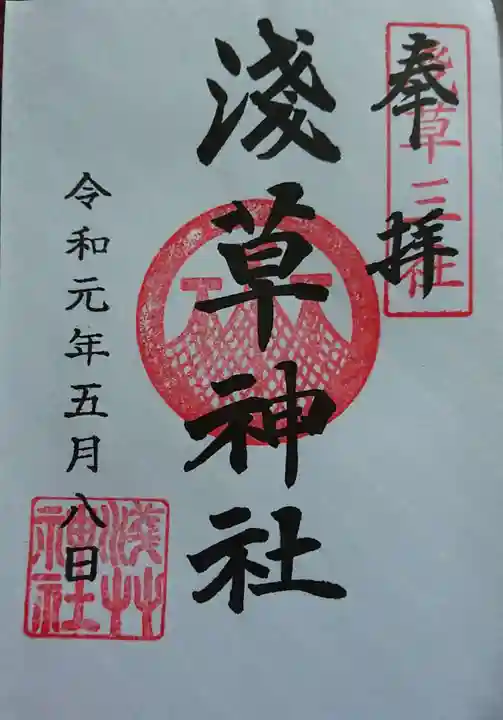 奉拝
浅草三社
淺草神社
令和元年五月八日
淺草
神社